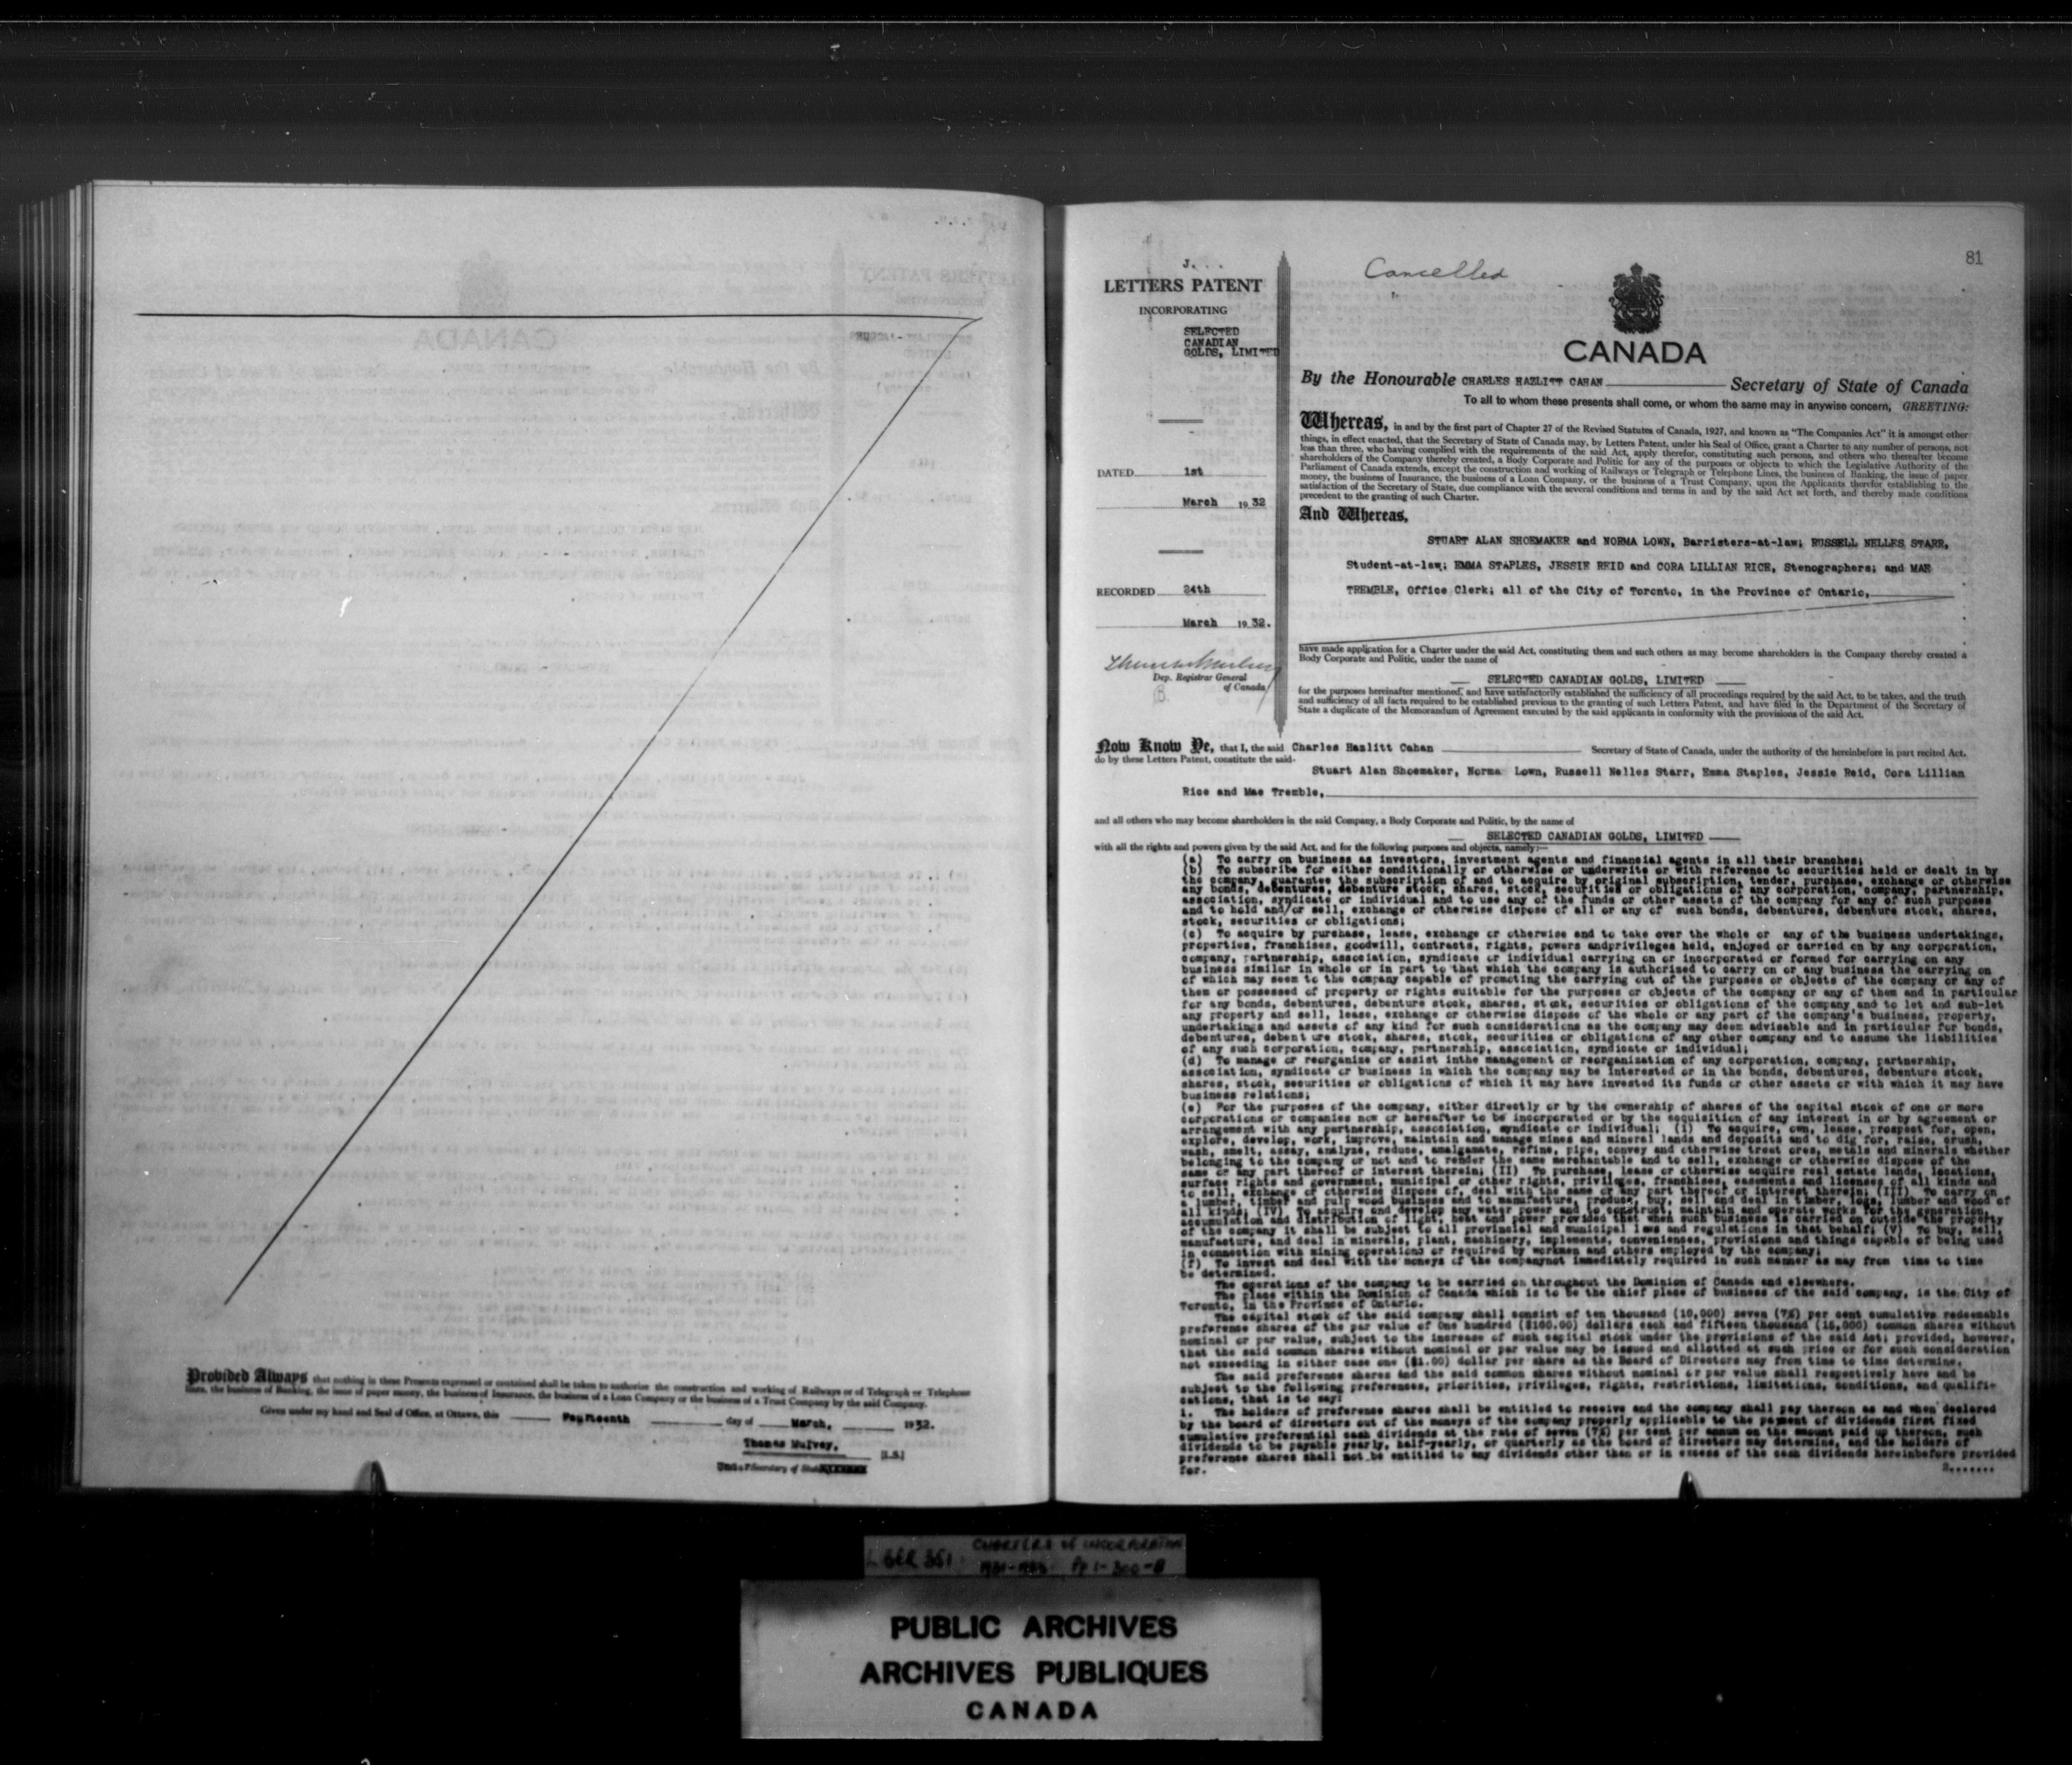 Provided Always that nothing in these Presents expressed or contained shall be taken to authorize the construction and working of Railways or of Telegraph or Telephone
lines, the business of Banking, the issue of paper money, the business of Insurance, the business of a Loan Company or the business of a Trust Company by the said Company.
Given under my hand and Seal of Office, at Ottawa, this Fourteenth day of March, 1932.
Thomas Mulvey, [L.S.]
Under Secretary of State
81
Cancelled
LETTERS PATENT
INCORPORATING
SELECTED
CANADIAN
GOLDS, LIMITED
DATED 1st
March 1932
RECORDED 24th
March 1932.
Thomas Mulvey
Dep. Registrar General
of Canada
CANADA
By the Honourable CHARLES HAZLITT CAHAN Secretary of State of Canada
To all to whom these presents shall come, or whom the same may in anywise concern, GREETING:
Whereas, in and by the first part of Chapter 27 of the Revised Statutes of Canada, 1927, and known as "The Companies Act" it is amongst other
things, in effect enacted, that the Secretary of State of Canada may, by Letters Patent, under his Seal of Office, grant a Charter to any number of persons, not
less than three, who having complied with the requirements of the said Act, apply therefor, constituting such persons, and others who thereafter become
shareholders of the Company thereby created, a Body Corporate and Politic for any of the purposes or objects to which the Legislative Authority of the
Parliament of Canada extends, except the construction and working of Railways or Telegraph or Telephone Lines, the business of Banking, the issue of paper
money, the business of Insurance, the business of a Loan Company, or the business of a Trust Company, upon the Applicants therefor establishing to the
satisfaction of the Secretary of State, due compliance with the several conditions and terms in and by the said Act set forth, and thereby made conditions
precedent to the granting of such Charter.
And Whereas,
STUART ALAN SHOEMAKER and NORMA LOWN, Barristers-at-law; RUSSELL NELLES STARR,
Student-at-law; EMMA STAPLES, JESSIE REID and CORA LILLIAN RICE, Stenographers; and MAE
TREMBLE, Office Clerk; all of the City of Toronto, in the Province of Ontario,
have made application for a Charter under the said Act, constituting them and such others as may become shareholders in the Company thereby created a
Body Corporate and Politic, under the name of
SELECTED CANADIAN GOLDS, LIMITED
for the purposes hereinafter mentioned, and have satisfactorily established the sufficiency of all proceedings required by the said Act, to be taken, and the truth
and sufficiency of all facts required to be established previous to the granting of such Letters Patent, and have filed in the Department of the Secretary of
State a duplicate of the Memorandum of Agreement executed by the said applicants in conformity with the provisions of the said Act.
Now Know Ye, that I, the said Charles Hazlitt Cahan Secretary of State of Canada, under the authority of the hereinbefore in part recited Act,
do by these Letters Patent, constitute the said
Stuart Alan Shoemaker, Norma Lown, Russell Nelles Starr, Emma Staples, Jessie Reid, Cora Lillian
Rice and Mae Tremble,
and all others who may become shareholders in the said Company, a Body Corporate and Politic, by the name of
SELECTED CANADIAN GOLDS, LIMITED
with all the rights and powers given by the said Act, and for the following purposes and objects, namely:—
(a) To carry on business as investors, investment agents and financial agents in all their branches;
(b) To subscribe for either conditionally or otherwise or underwrite or with reference to securities held or dealt in by
the company, guarantee the subscription of and to acquire by original subscription, tender, purchase, exchange or otherwise
any bonds, debentures, debenture stock, shares, stock, securities or obligations of any corporation, company, partnership,
association, syndicate or individual and to use any of the funds or other assets of the company for any of such purposes
and to hold and/or sell, exchange or otherwise dispose of all or any of such bonds, debentures, debenture stock, shares,
stock, securities or obligations;
(c) To acquire by purchase, lease, exchange or otherwise and to take over the whole or any of the business undertakings,
properties, franchises, goodwill, contracts, rights, powers andprivileges held, enjoyed or carried on by any corporation,
company, partnership, association, syndicate or individual carrying on or incorporated or formed for carrying on any
business similar in whole or in part to that which the company is authorized to carry on or any business the carrying on
of which may seem to the company capable of promoting the carrying out of the purposes or objects of the company or any of
them or possessed of property or rights suitable for the purposes or objects of the company or any of them and in particular
for any bonds, debentures, debenture stock, shares, stock, securities or obligations of the company and to let and sub-let
any property and sell, lease, exchange or otherwise dispose of the whole or any part of the company's business, property,
undertakings and assets of any kind for such considerations as the company may deem advisable and in particular for bonds,
debentures, debent ure stock, shares, stock, securities or obligations of any other company and to assume the liabilities
of any such corporation, company, partnership, association, syndicate or individual;
(d) To manage or reorganize or assist inthe management or reorganization of any corporation, company, partnership,
association, syndicate or business in which the company may be interested or in the bonds, debentures, debenture stock,
shares, stock, securities or obligations of which it may have invested its funds or other assets or with which it may have
business relations;
(e) For the purposes of the company, either directly or by the ownership of shares of the capital stock of one or more
corporations or companies now or hereafter to be incorporated or by the acquisition of any interest in or by agreement or
arrangement with any partnership, association, syndicate or individual; (i) To acquire, own, lease, prospect for, open,
explore, develop, work, improve, maintain and manage mines and mineral lands and deposits and to dig for, raise, crush,
wash, smelt, assay, analyze, reduce, amalgamate, refine, pipe, convey and otherwise treat ores, metals and minerals whether
belonging to the company or not and to render the same merchantable and to sell, exchange or otherwise dispose of the
same or any part thereof or interest therein; (II) To purchase, lease or otherwise acquire real estate lands, locations,
surface rights and government, municipal or other rights, privileges, franchises, easements and licenses of all kinds and
to sell, exchange or otherwise dispose of, deal with the same or any part thereof or interest therein; (III) To carry on
a lumber, timber and pulp wood business and to manufacture, produce, buy, sell and deal in timber, logs, lumber and wood of
all kinds; (IV) To acquire and develop any water power and to construct, maintain and operate works for the generation,
accumulation and distribution of light, heat and power provided that when such business is carried on outside the property
of the company it shall be subject to all provincial and municipal laws and regulations in that behalf; (V) To buy, sell,
manufacture, and deal in minerals, plant, machinery, implements, conveniences, provisions and things capable of being used
in connection with mining operations or required by workmen and others employed by the company;
(f) To invest and deal with the moneys of the companynot immediately required in such manner as may from time to time
be determined.
The operations of the company to be carried on throughout the Dominion of Canada and elsewhere.
The place within the Dominion of Canada which is to be the chief place of business of the said company, is the City of
Toronto, in the Province of Ontario.
The capital stock of the said company shall consist of ten thousand (10,000) seven (7%) per cent cumulative redeemable
preference shares of the par value of One hundred ($100.00) dollars each and fifteen thousand (15,000) common shares without
nominal or par value, subject to the increase of such capital stock under the provisions of the said Act; provided, however,
that the said common shares without nominal or par value may be issued and allotted at such price or for such consideration
not exceeding in either case one ($1.00) dollar per share as the Board of Directors may from time to time determine.
The said preference shares and the said common shares without nominal or par value shall respectively have and be
subject to the following preferences, priorities, privileges, rights, restrictions, limitations, conditions, and qualifi-
cations, that is to say:
1. The holders of preference shares shall be entitled to receive and the company shall pay thereon as and when declared
by the board of directors out of the moneys of the company properly applicable to the payment of dividends first fixed
cumulative preferential cash dividends at the rate of seven (7%) per cent per annum on the amount paid up thereon, such
dividends to be payable yearly, half-yearly, or quarterly as the board of directors may determine, and the holders of
preference shares shall not be entitled to any dividends other than or in excess of the cash dividends hereinbefore provided
for.
2.......
LIBER 351 CHARTERS OF INCORPORATION
1931-1933 Pp 1-300-B
PUBLIC ARCHIVES
ARCHIVES PUBLIQUES
CANADA